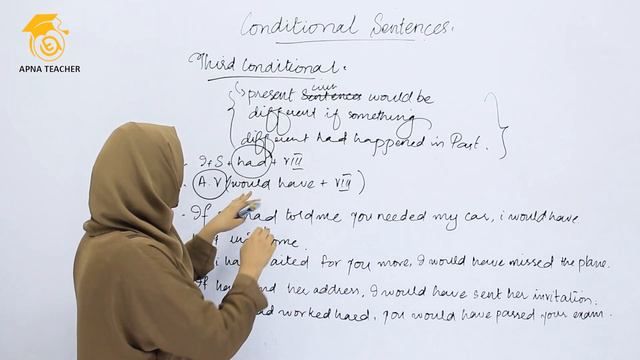 APNA TEACHER
Conditional Sentences.
Third Conditional.
present Sentences would be
different if something
different had happened in Past.
If S + had + VIII
A.V (would have + VIII)
If had told me you needed my car, i would have
home.
i ha aited for you more, I would have missed the plane.
If ha nd her address, I would have sent her invitation.
ad worked hard, you would have passed your exam.